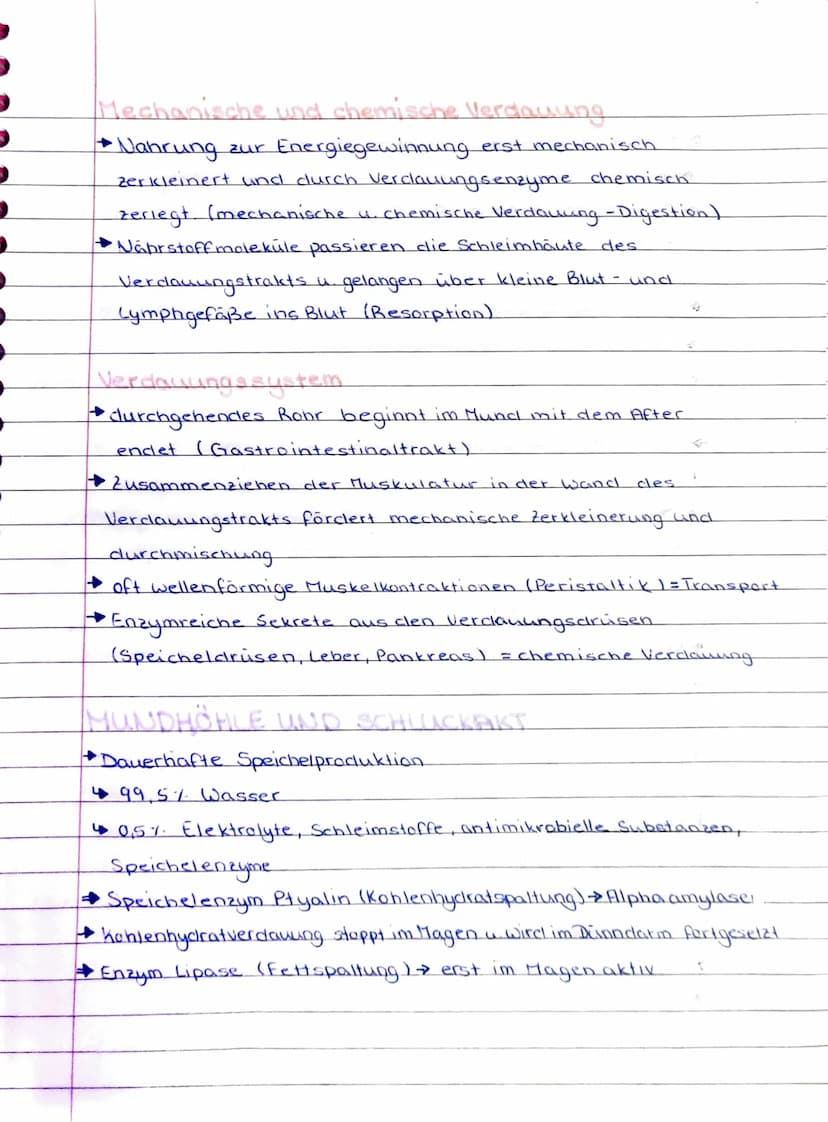 Mechanische und chemische Verdauung
→ Nahrung zur Energiegewinnung erst mechanisch
zerkleinert und durch Verdauungsenzyme chemisch
zerlegt. (mechanische u. chemische Verdauung - Digestion)
→ Nährstoffmoleküle passieren die Schleimhäute des
Verdauungstrakts u. gelangen über kleine Blut- und
Lymphgefäße ins Blut (Resorption)
Verdauungssystem
→ durchgehendes Rohr beginnt im Mund mit dem After
endet (Gastrointestinaltrakt)
→ Zusammenziehen der Muskulatur in der Wand des
Verdauungstrakts fördert mechanische Zerkleinerung und
durchmischung
→ oft wellenförmige Muskelkontraktionen (Peristaltik) = Transport
→ Enzymreiche Sekrete aus den Verdauungsdrüsen
(Speicheldrüsen, Leber, Pankreas) = chemische Verdauung
MUNDHÖHLE UND SCHLUCKAKT
→ Dauerhafte Speichelproduktion
↳ 99,5% Wasser
↳ 0,5% Elektrolyte, Schleimstoffe, antimikrobielle Substanzen,
Speichelenzyme
→ Speichelenzym Ptyalin (Kohlenhydratspaltung) → Alphaamylase
→ Kohlenhydratverdauung stoppt im Magen u. wird im Dünndarm fortgesetzt
→ Enzym Lipase (Fettspaltung) → erst im Magen aktiv